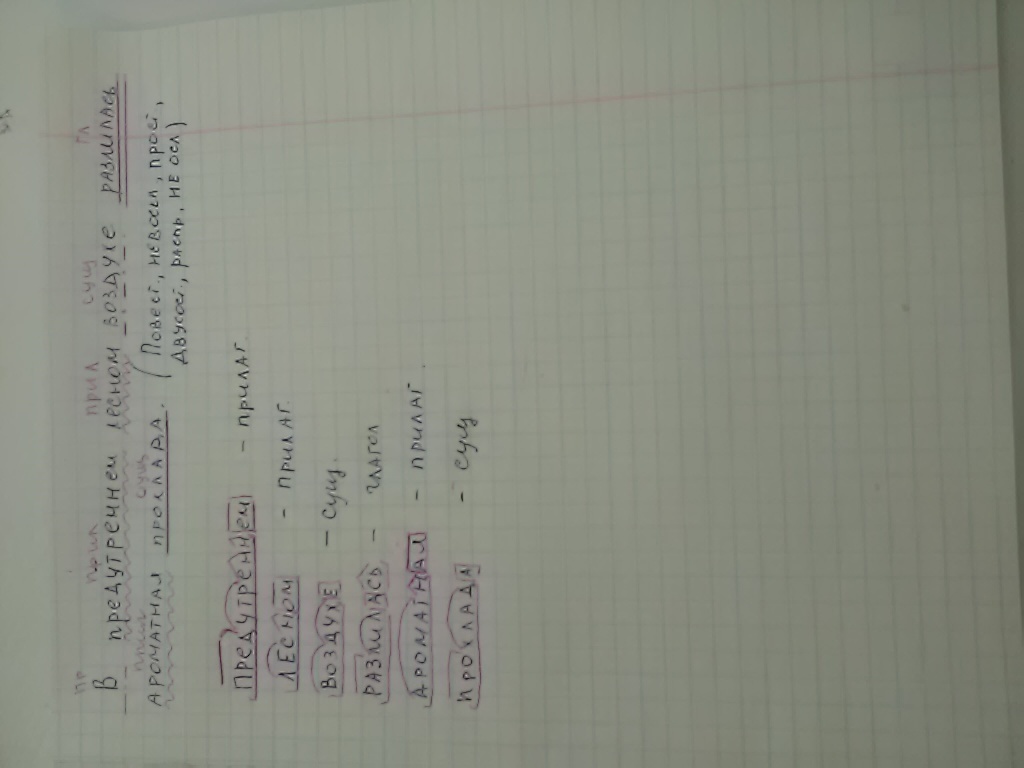 пр прил прил сущ гл
В предутреннем лесном воздухе разлилась
прил сущ
ароматная прохлада. (Повест, невоскл, прост,
двусост, распр, не осл)
Предутреннем - прилаг.
Лесном - прилаг.
Воздухе - сущ.
Разлилась - глагол
Ароматная - прилаг.
Прохлада - сущ